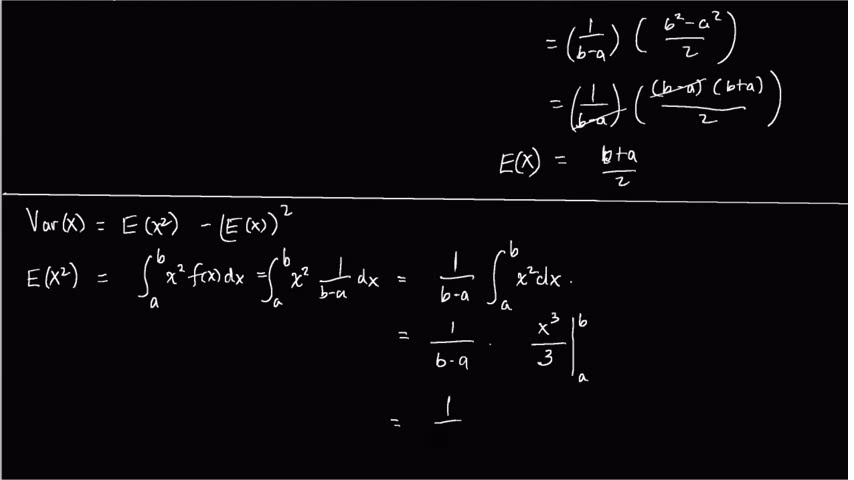 = (1/(b-a)) ((b²-a²)/2)
= (1/(b-a)) ((b-a)(b+a)/2)
E(X) = (b+a)/2
Var(X) = E(X²) - (E(X))²
E(X²) = ∫ₐᵇ x² f(x) dx = ∫ₐᵇ x² 1/(b-a) dx = 1/(b-a) ∫ₐᵇ x² dx.
= 1/(b-a) · x³/3 |ₐᵇ
= 1/